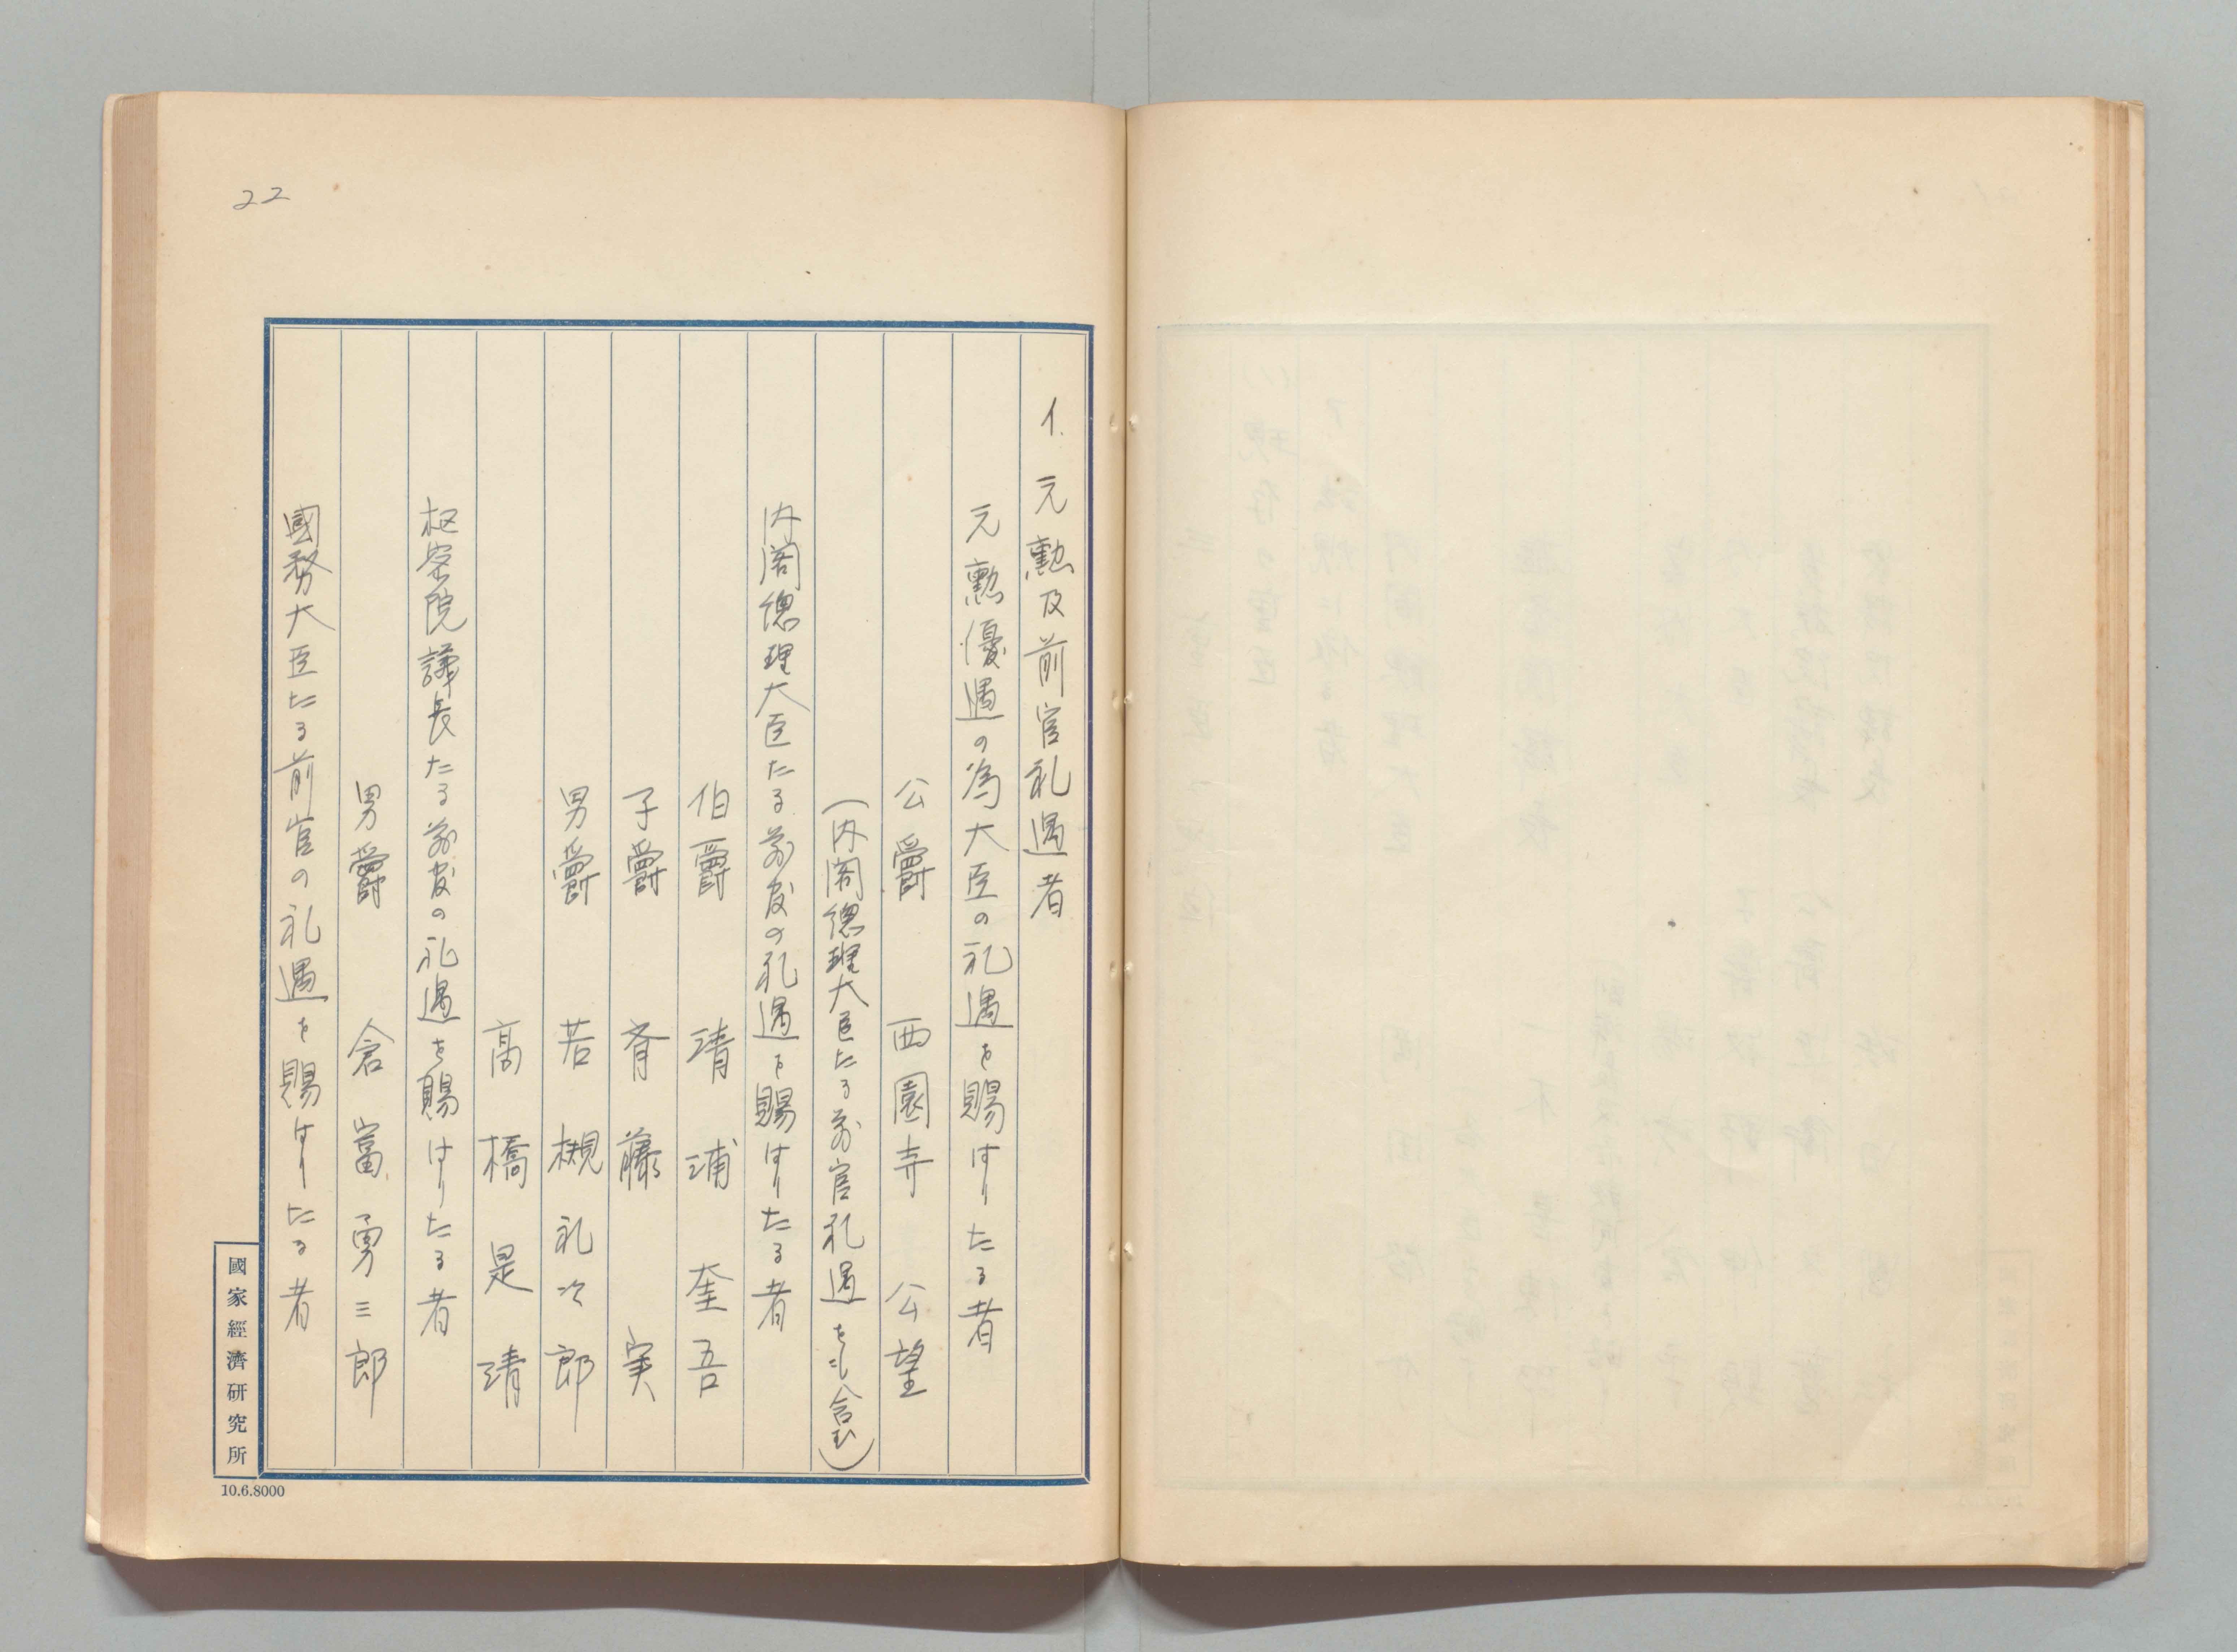 22
イ.元勲及前官礼遇者
元勲優遇の為大臣の礼遇を賜はりたる者
公爵 西園寺公望
(内閣總理大臣たる前官礼遇をも含む)
内閣總理大臣たる前官の礼遇を賜はりたる者
伯爵 清浦奎吾
子爵 斉藤実
男爵 若槻礼次郎
高橋是清
枢密院議長たる前官の礼遇を賜はりたる者
男爵 倉富勇三郎
國務大臣たる前官の礼遇を賜はりたる者
國家經濟研究所
10.6.8000